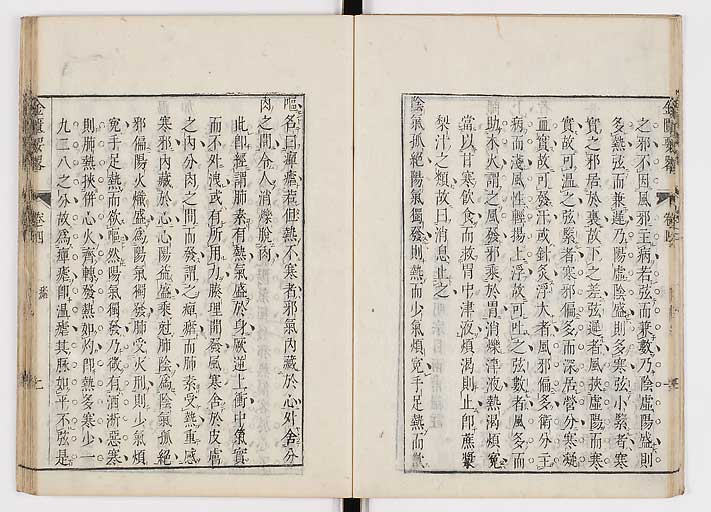 之邪不因風邪主病若弦而兼數乃陰虛陽盛則
多熱弦而兼遲乃陽虛陰盛則多寒弦小緊者寒
實之邪居於裏故下之差弦遲者風挾虛陽而寒
實故可溫之弦緊者寒邪偏多而深居營分寒凝
血實故可發汗或針灸浮大者風邪偏多衛分主
病而淺風性輕揚上浮故可吐之弦數者風多而
助木火謂之風發邪乘於胃消爍津液熱渴煩冤
當以甘寒飲食而救胃中津液煩渴則止即蔗漿
梨汁之類故曰消息止之
陰氣孤絕陽氣獨發則熱而少氣煩冤手足熱而欲
嘔名曰癉瘧若但熱不寒者邪氣內藏於心外舍分
肉之間令人消爍脫肉
此即經謂肺素有熱氣盛於身厥逆上衝中氣實
而不外洩或有所用力腠理開發風寒舍於皮膚
之內分肉之間而發謂之癉瘧而肺素受熱重感
寒邪內藏於心心陽益盛乘尅肺陰爲陰氣孤絕
邪偏陽火熾盛爲陽氣獨發肺受火刑則少氣煩
冤手足熱而欲嘔然陽氣獨發乃微有洒淅惡寒
則肺熱挾併心火齊轉發熱如灼即熱多寒少一
九二八之分故爲癉瘧即溫瘧其脉如平不弦是
金匱要略
卷四